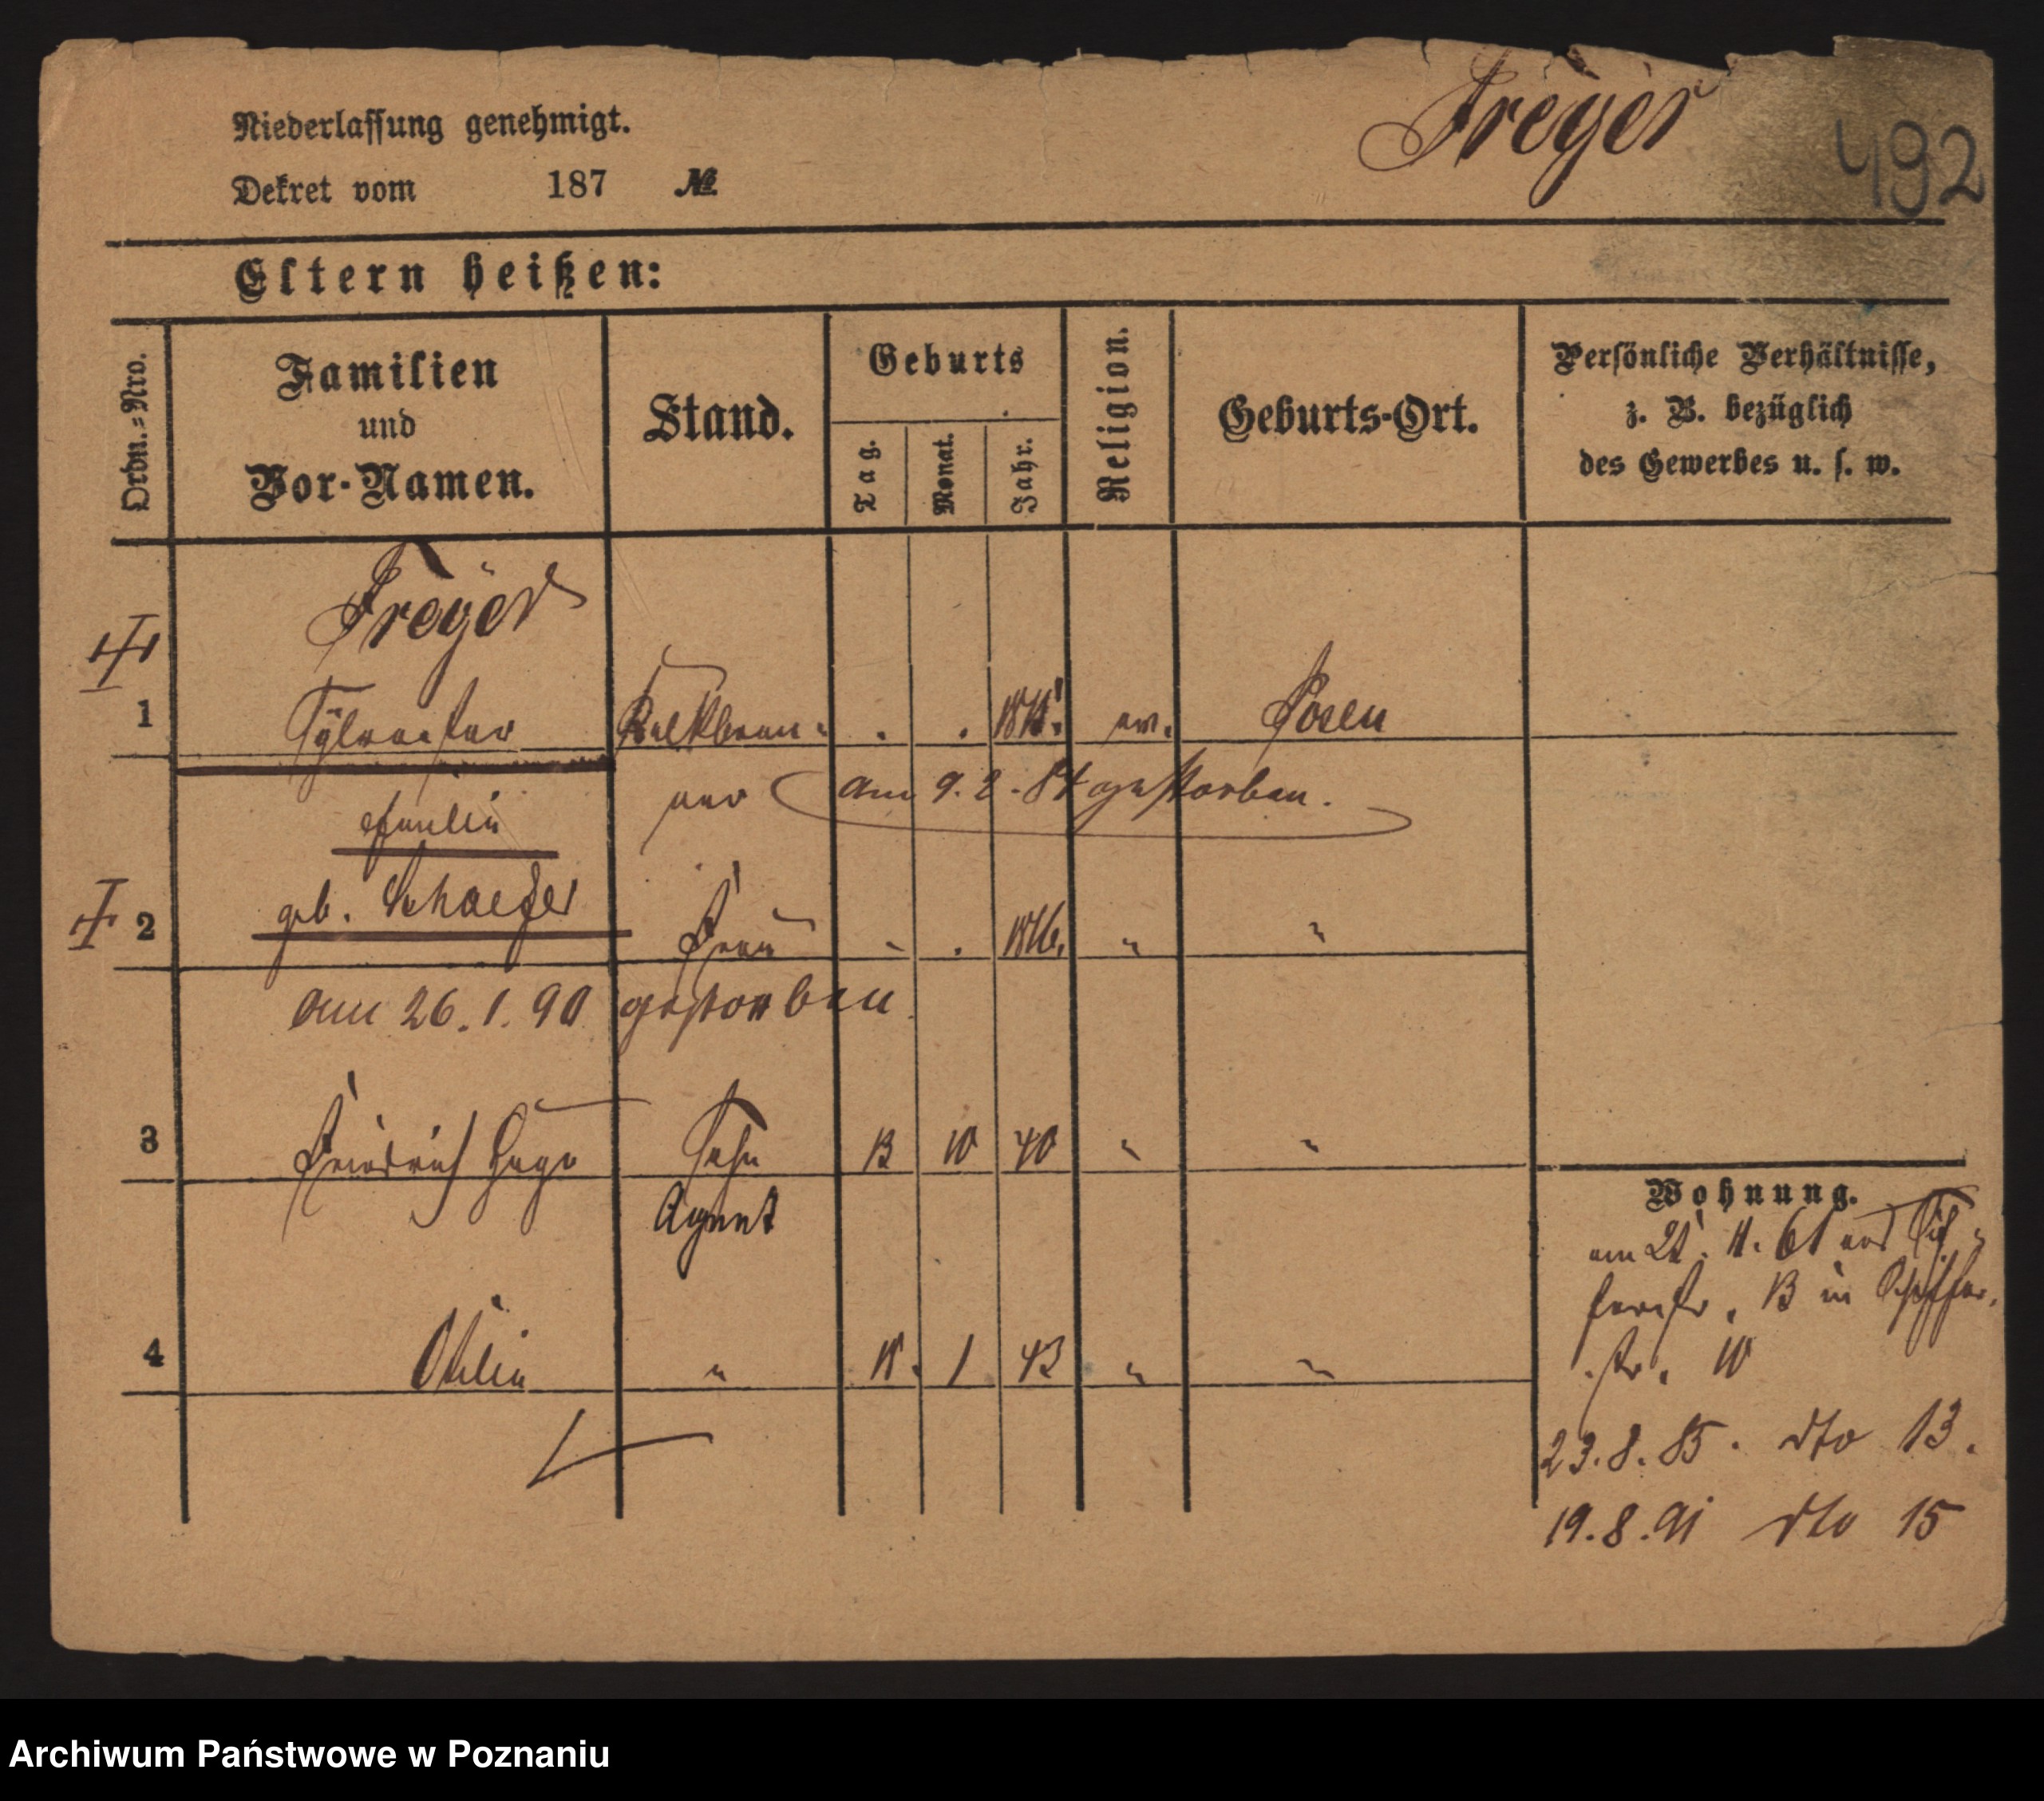 Niederlassung genehmigt.
Dekret vom 187 №
Freyer
492
Eltern heißen:
Ordn.-Nro.
Familien
und
Vor-Namen.
Stand.
Geburts
Tag.
Monat.
Jahr.
Religion.
Geburts-Ort.
Persönliche Verhältnisse,
z. B. bezüglich
des Gewerbes u. s. w.
Freyer
1 Sylvester ev. Posen
am 9. 2. 84 gestorben.
geb. Schaefer
2 Frau 1816. " "
am 26. 1. 90 gestorben.
3 Friedrich Hugo Sohn 13 10 40 " "
Agent
4 " 18. 1 43 " "
Wohnung.
13 in
str. 10
23. 8. 85. dto 13.
19. 8. 91 dto 15
Archiwum Państwowe w Poznaniu